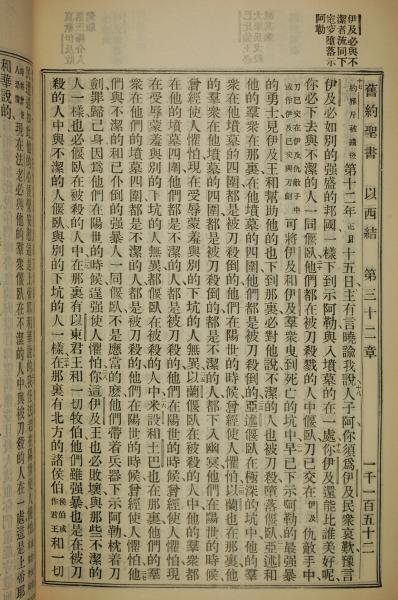 伊及必與不
潔者流同下
定穽墮落示
阿勒
舊約聖書 以西結 第三十二章 一千一百五十二
約雅斤被擄後第十二年正月十五日主有言曉諭我說人子阿你須爲伊及民衆哀歎豫言
伊及必如別的强盛的邦國一樣下到示阿勒與入墳墓的在一處你伊及還能比誰美好呢
你必下去與不潔的人一同偃臥他們都在被刀殺戮的人中偃臥刀已交在伊及仇敵手中
刀已交在伊及仇敵手中或作伊及已交與刀劍可將伊及和伊及羣衆曳到死亡的坑中早已下示阿勒的最强暴
的勇士見伊及王和幫助他的也下到那裏必對他說不潔的人也被刀殺墮落偃臥亞述和
他的羣衆在那裏在他墳墓的四圍他們都是被刀殺倒的亞述偃臥在極深的坑中他的羣
衆在他的墳墓四圍都是被刀殺倒的他們在陽世的時候曾經使人懼怕以蘭也在那裏他
的羣衆在他墳墓四圍都是被刀殺倒的都是不潔的人都下入幽冥他們在陽世的時候
曾經使人懼怕現在受辱蒙羞與別的下坑的人無異以蘭偃臥在被殺的人中他的羣衆
在他的墳墓四圍他們都是不潔的人都是被刀殺的他們在陽世的時候曾經使人懼怕現
在受辱蒙羞與別的下坑的人無異都偃臥在被殺的人中米設和土巴也在那裏他們的羣衆
在他們的墳墓四圍都是不潔的人都是被刀殺的他們在陽世的時候曾經使人懼怕他
們與不潔的和已仆倒的强暴人一同偃臥不是應當的麽他們帶着兵器下示阿勒枕着刀
劍罪歸己身因爲他們在陽世的時候逞强使人懼怕你這伊及王也必敗壞與那些不潔的
人一樣也必偃臥在被殺的人中在那裏有以東君王和一切牧伯他們雖强暴也是在被刀
殺的人中與不潔的人偃臥與別的下坑的人一樣在那裏有北方的諸侯伯侯伯或作君王和一切
現在法老必與他的羣衆偃臥在不潔的人中與被刀殺的人在一處這是上帝耶
和華說的